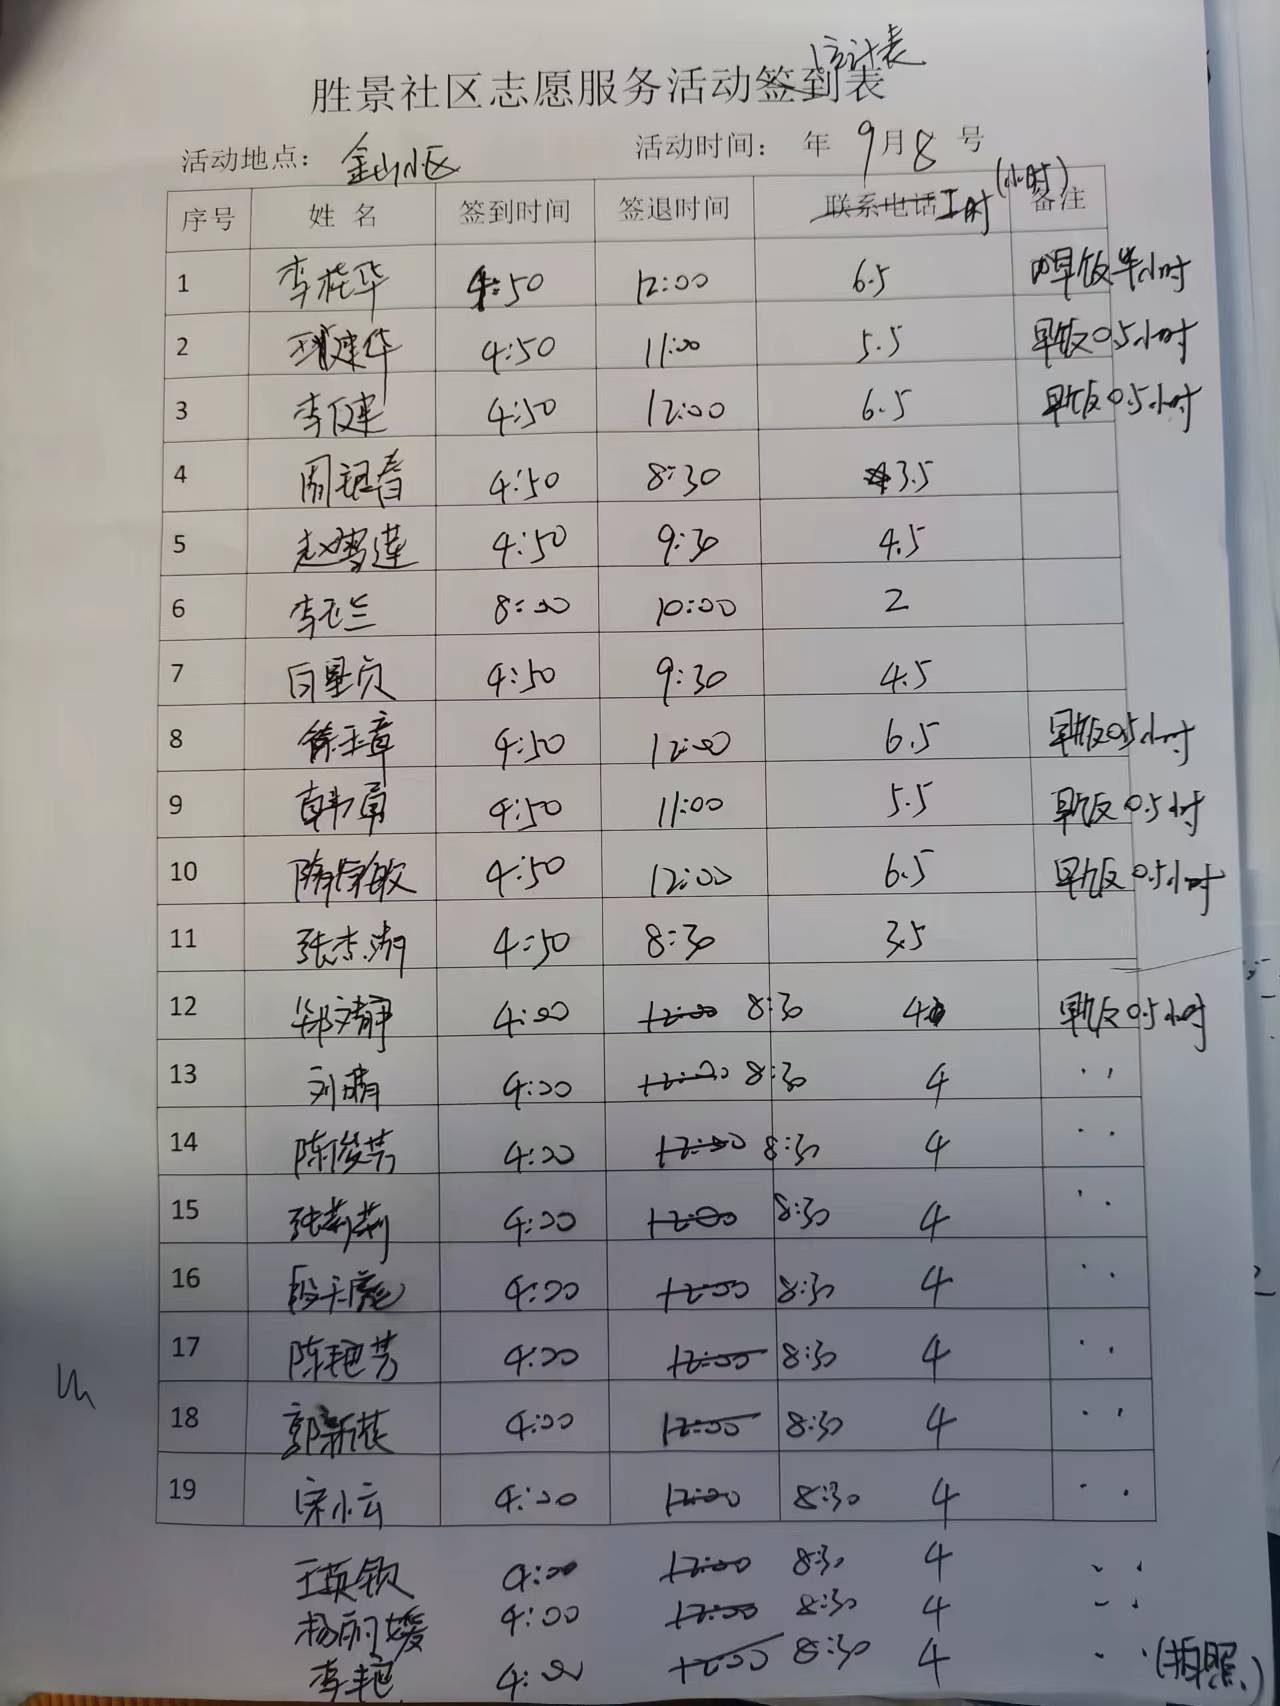 胜景社区志愿服务活动签到表 统计表
活动地点：金山小区 活动时间： 年 9月8号
序号 姓 名 签到时间 签退时间 联系电话 工时(小时) 备注
1 李桂华 4:50 12:00 6.5 早饭半小时
2 建华 4:50 11:00 5.5 早饭0.5小时
3 李健 4:50 12:00 6.5 早饭0.5小时
4 周银春 4:50 8:30 3.5
5 赵雪莲 4:50 9:30 4.5
6 李玉兰 8:00 10:00 2
7 白星贞 4:50 9:30 4.5
8 徐玉章 4:50 12:00 6.5 早饭0.5小时
9 韩勇 4:50 11:00 5.5 早饭0.5小时
10 隋学敏 4:50 12:00 6.5 早饭0.5小时
11 张杰 4:50 8:30 3.5
12 郑文静 4:00 12:00 8:30 4 早饭0.5小时
13 刘晴 4:00 12:00 8:30 4 〃
14 陈俊芳 4:00 12:00 8:30 4 〃
15 张莉莉 4:00 12:00 8:30 4 〃
16 段天彪 4:00 12:00 8:30 4 〃
17 陈艳芳 4:00 12:00 8:30 4 〃
18 郭新花 4:00 12:00 8:30 4 〃
19 宋小云 4:00 12:00 8:30 4 〃
王英钦 4:00 12:00 8:30 4 〃
杨丽媛 4:00 12:00 8:30 4 〃
李艳 4:00 12:00 8:30 4 〃 (拍照)